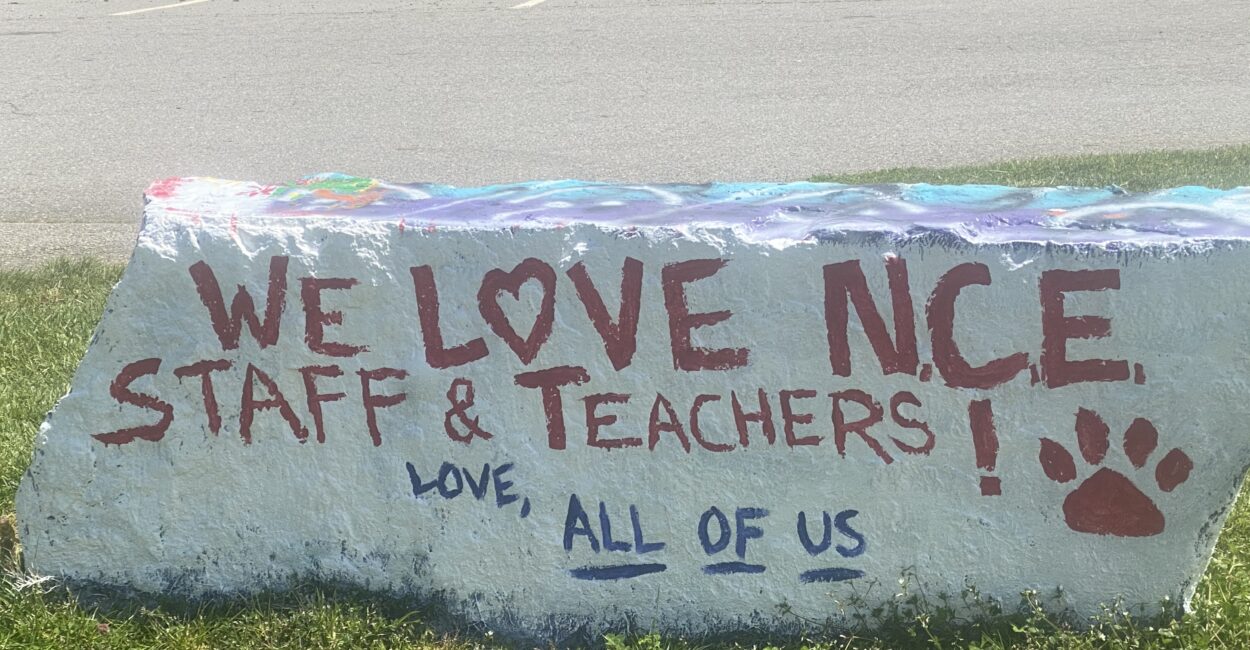 WE LOVE N.C.E.
STAFF & TEACHERS!
LOVE,
ALL OF US